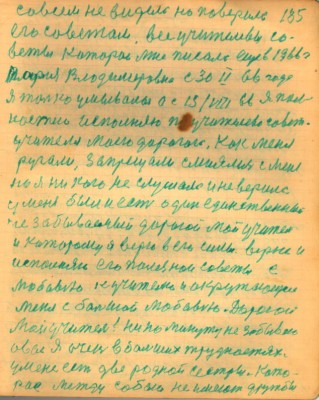 совсем не видила но поверила 185
его советам, все учителевы со-
веты которое мне писала еще в 1966 г
Мария Владимеровно с 30 II 66 года
Я только умывалас а с 13/VIII 66 Я пол
ностию исполняю учителево совет.
учителя моего дорогого. Как меня
ругали, Запрещали смиялися с меня
но я ни кого не слушала и не верила
у меня был и ест один единственный
не забываемый дорогой мой учител
и которому я верю в его силы верю и
исполняю его полезной советы с
любовью к учителю и окружающие
меня с болшой любовью. Дорогой
мой учител! ни по минуту не забиваю
о вас Я очен в болших трудностях.
у мене ест две родной сестры. Кото-
рые между собою не имеют дружби